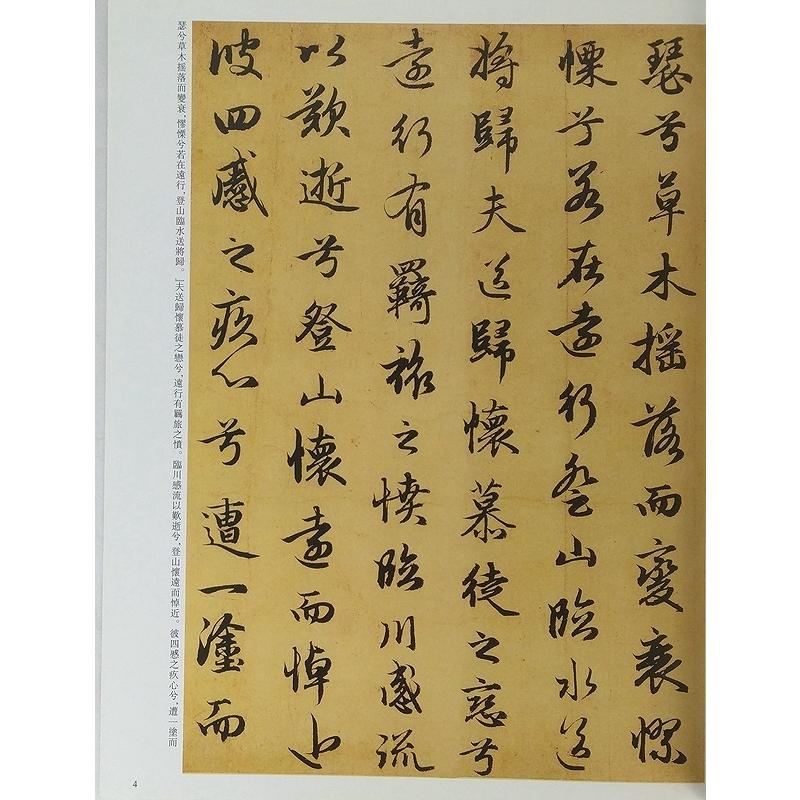 瑟兮草木摇落而變衰憀
慄兮若在遠行登山臨水送
將歸夫送歸懷慕徒之戀兮
遠行有羈旅之憤臨川感流
以歎逝兮登山懷遠而悼近
彼四慼之疚心兮遭一塗而
瑟兮草木摇落而變衰，憀慄兮若在遠行，登山臨水送將歸。」夫送歸懷慕徒之戀兮，遠行有羈旅之憤。臨川感流以歎逝兮，登山懷遠而悼近。彼四慼之疚心兮，遭一塗而
4